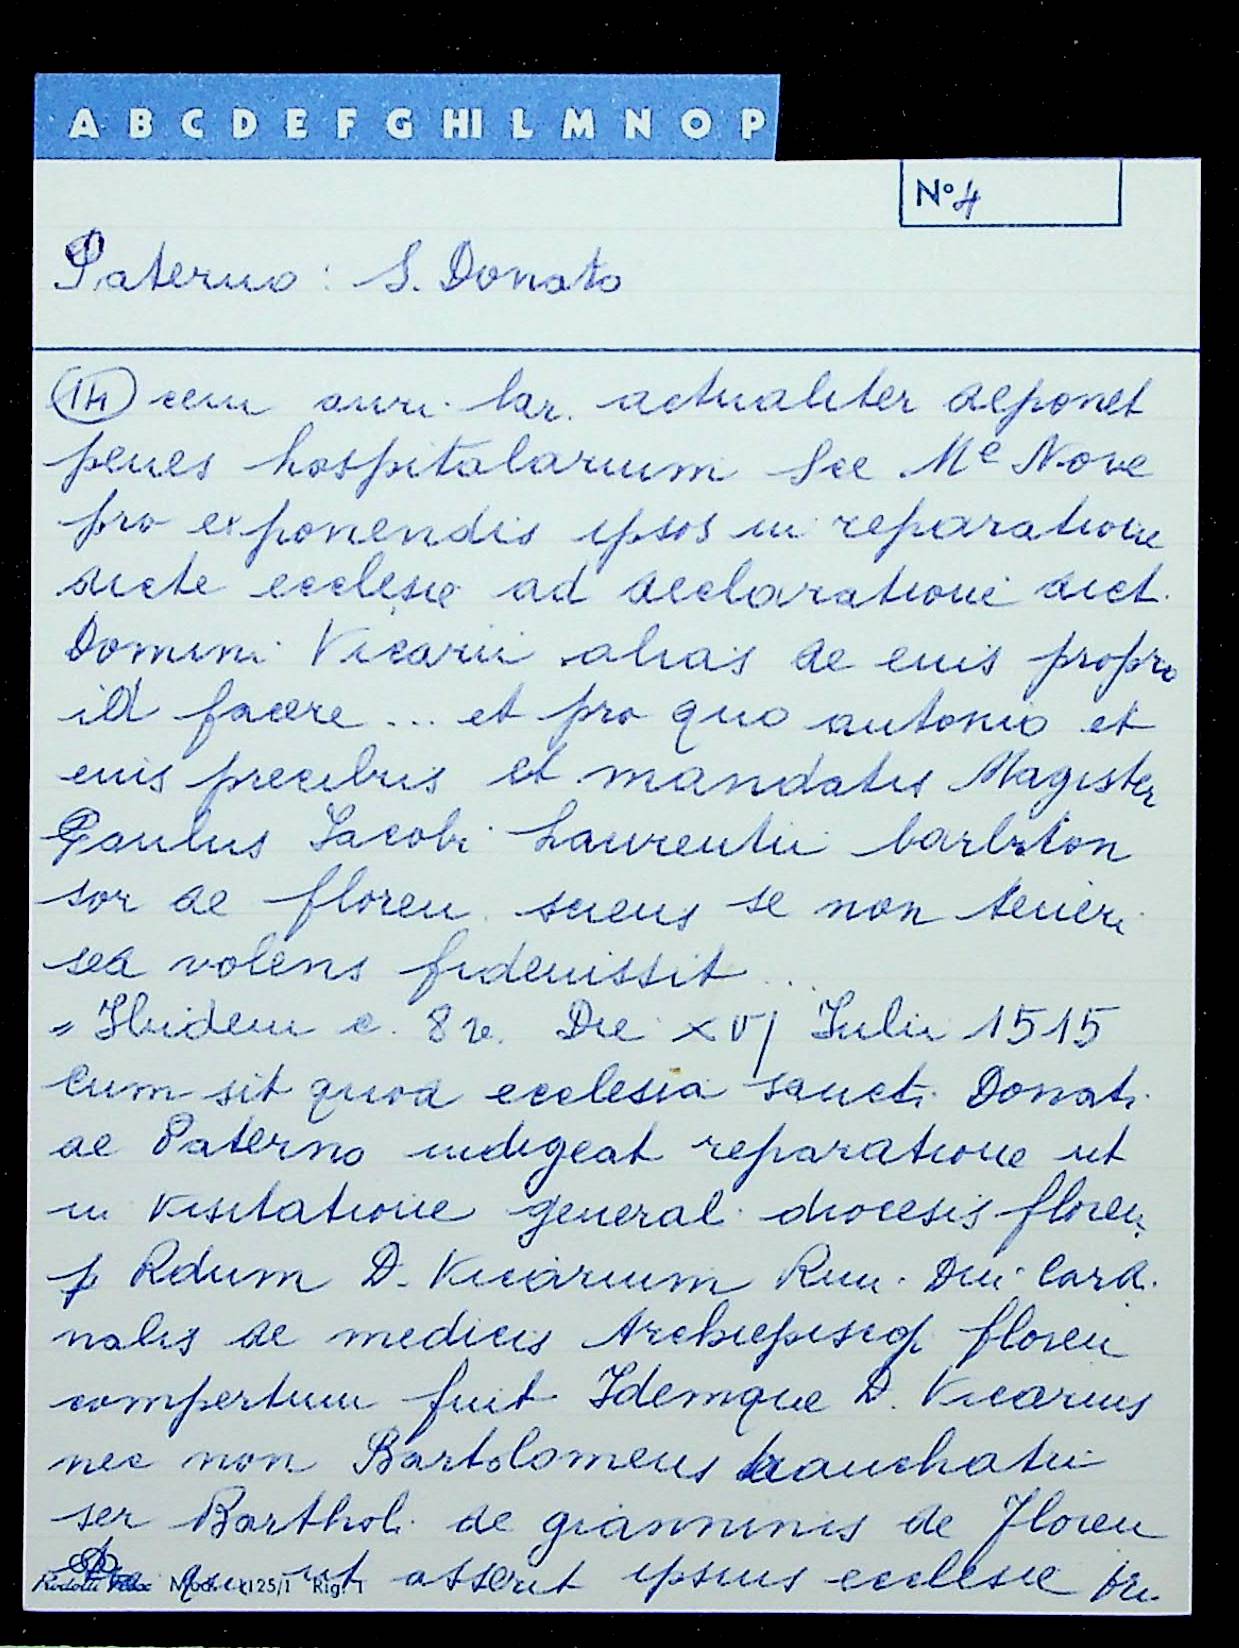 A B C D E F G HI L M N O P
N° 4
Paterno: S. Donato
(14) cem auri. lar. actualiter deponet
penes hospitalarium See Me Nove
pro exponendis ipsos in reparatione
dicte ecclesie ad declaratione dict.
Domini Vicarii alias de eius propro
id facere ... et pro quo antonio et
euis precibus et mandatis Magister
Paulus Jacobi Laurentii barbiton
sor de floren. sciens se non teneri
sed volens fideiussit ...
" Ibidem c. 8v. Die XVJ Julii 1515
Cum sit quod ecclesia sancti Donati
de Paterno indigeat reparatione ut
in visitatione general. diocesis floren.
p Rdum D. Vicarium Rmi. Dni Card.
nalis de medicis Archiepiscop floren
compertum fuit Idemque D. Vicarius
nec non Bartolomeus
ser Barthol. de gianninis de Floren
Mod. X125/1 Rig. 1
ut asserit ipsius ecclesie